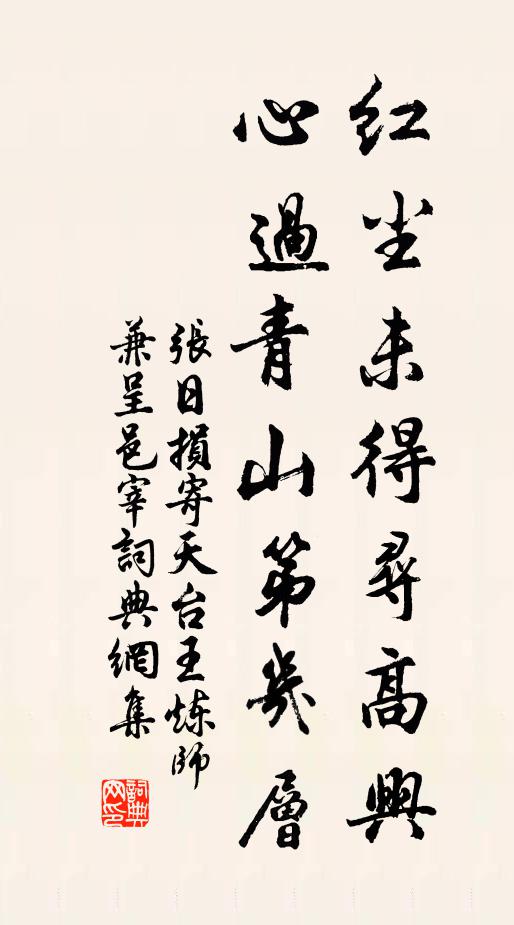 红尘未得尋高興
心過青山第幾層
張日損寄天台王炼師
兼呈邑宰詞典網集
詞典網印